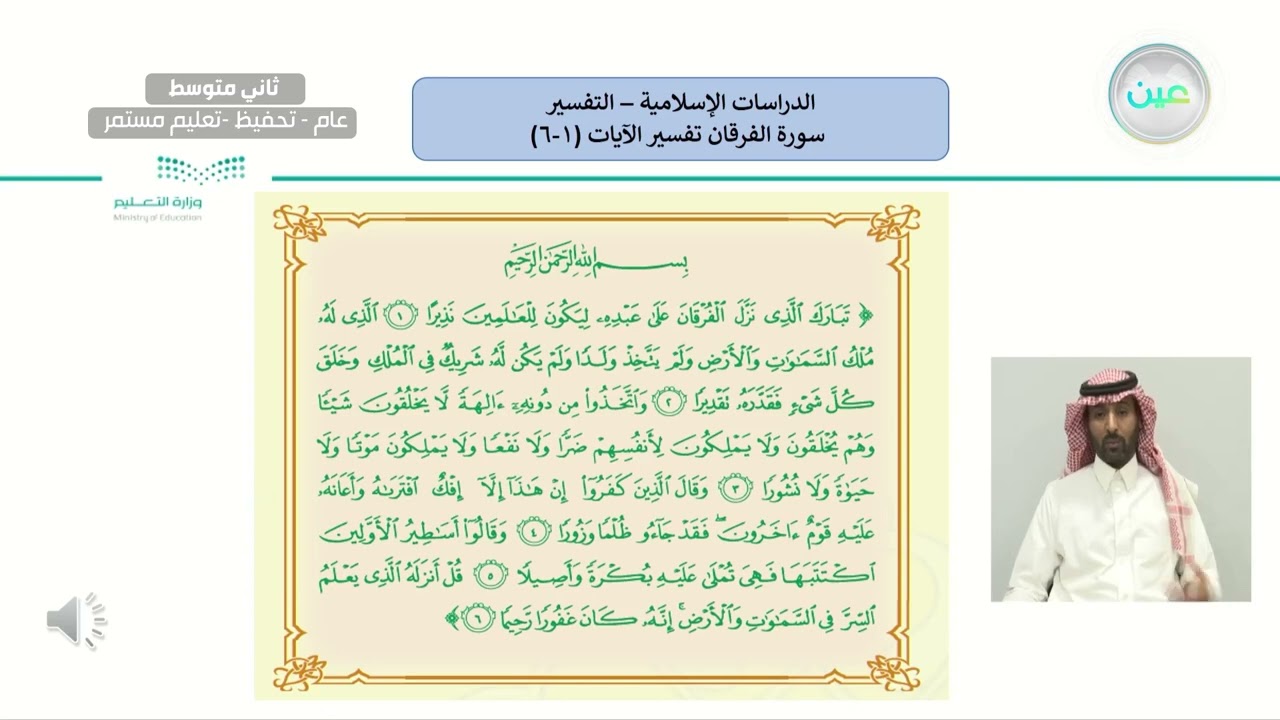 ثاني متوسط
عام - تحفيظ -تعليم مستمر
الدراسات الإسلامية – التفسير
سورة الفرقان تفسير الآيات (١-٦)
عين
وزارة التعليم
Ministry of Education
بِسْمِ اللَّهِ الرَّحْمَٰنِ الرَّحِيمِ
﴿ تَبَارَكَ الَّذِي نَزَّلَ الْفُرْقَانَ عَلَىٰ عَبْدِهِۦ لِيَكُونَ لِلْعَالَمِينَ نَذِيرًا ١ الَّذِي لَهُۥ
مُلْكُ السَّمَاوَاتِ وَالْأَرْضِ وَلَمْ يَتَّخِذْ وَلَدًا وَلَمْ يَكُن لَّهُۥ شَرِيكٌ فِي الْمُلْكِ وَخَلَقَ
كُلَّ شَيْءٍ فَقَدَّرَهُۥ تَقْدِيرًا ٢ وَاتَّخَذُوا مِن دُونِهِۦٓ ءَالِهَةً لَّا يَخْلُقُونَ شَيْئًا
وَهُمْ يُخْلَقُونَ وَلَا يَمْلِكُونَ لِأَنفُسِهِمْ ضَرًّا وَلَا نَفْعًا وَلَا يَمْلِكُونَ مَوْتًا وَلَا
حَيَوٰةً وَلَا نُشُورًا ٣ وَقَالَ الَّذِينَ كَفَرُوٓا إِنْ هَٰذَآ إِلَّآ إِفْكٌ افْتَرَىٰهُ وَأَعَانَهُۥ
عَلَيْهِ قَوْمٌ ءَاخَرُونَ ۖ فَقَدْ جَآءُو ظُلْمًا وَزُورًا ٤ وَقَالُوٓا أَسَاطِيرُ الْأَوَّلِينَ
اكْتَتَبَهَا فَهِيَ تُمْلَىٰ عَلَيْهِ بُكْرَةً وَأَصِيلًا ٥ قُلْ أَنزَلَهُ الَّذِي يَعْلَمُ
السِّرَّ فِي السَّمَاوَاتِ وَالْأَرْضِ ۚ إِنَّهُۥ كَانَ غَفُورًا رَّحِيمًا ٦ ﴾